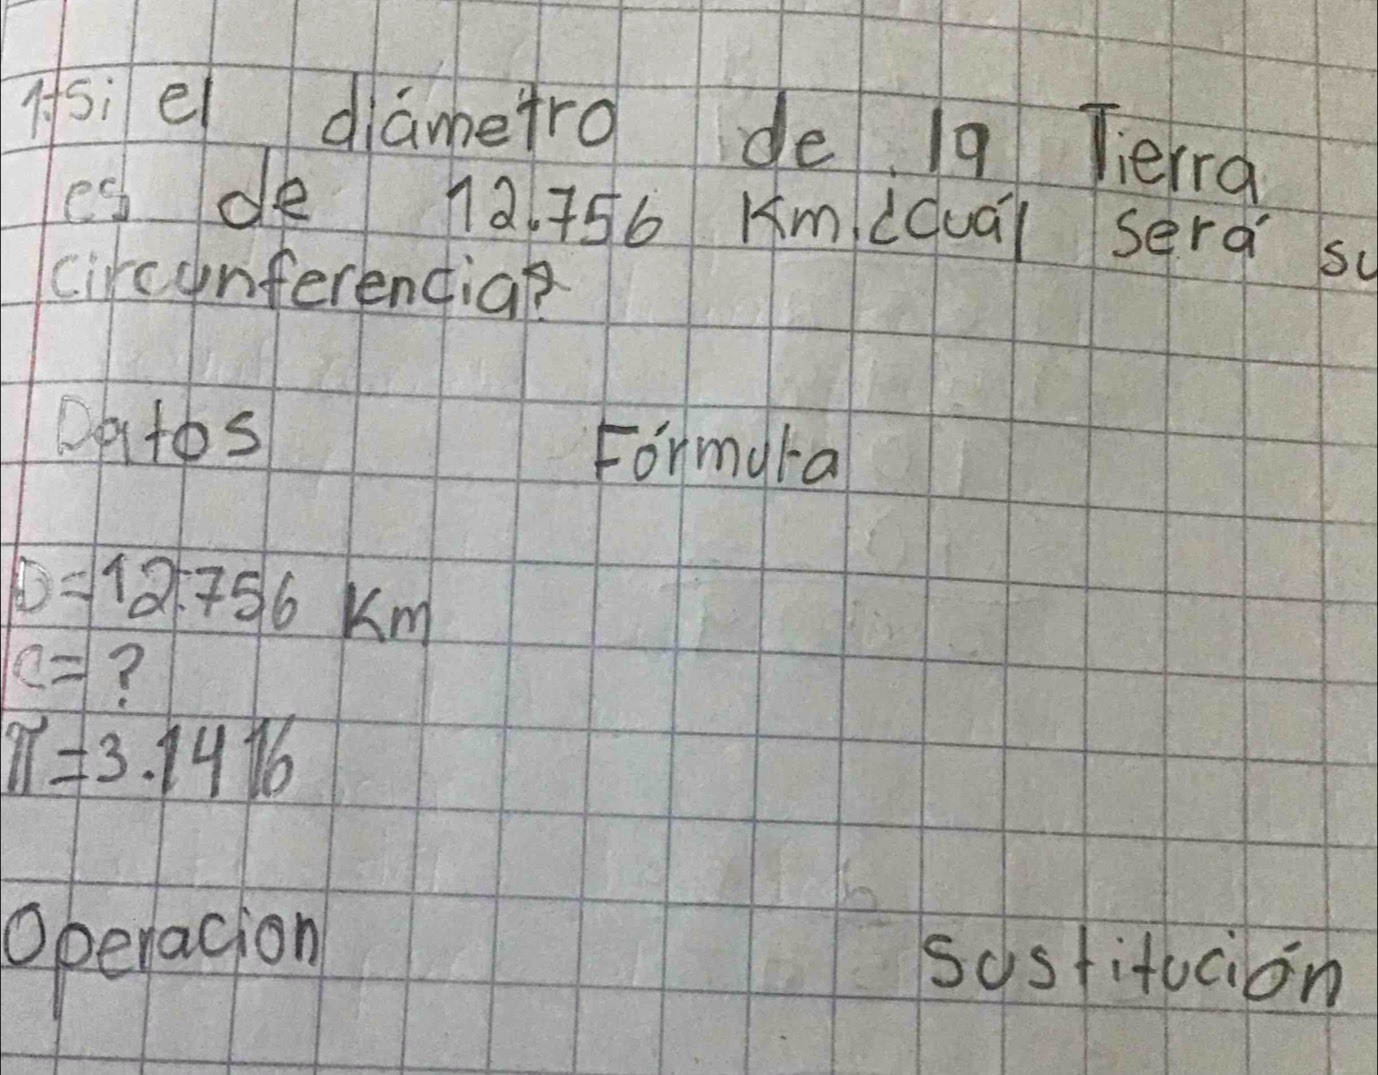 1.-Si el diámetro de la Tierra
es de 12.756 Km.¿Cuál será su
circunferencia?
Datos Fórmula
D=12.756 Km
C=?
π=3.1416
Operacion Sustitución